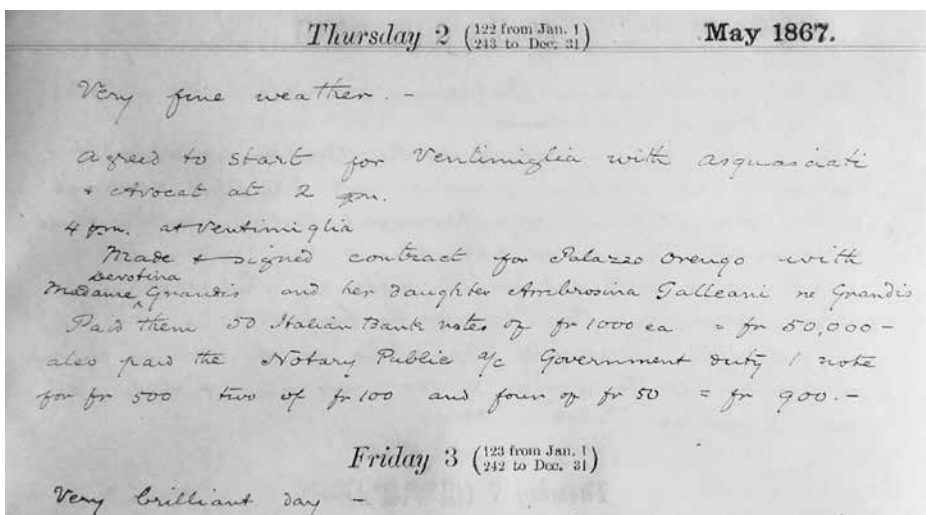 Thursday 2 (122 from Jan. 1 243 to Dec. 31) May 1867.
Very fine weather. -
agreed to start for Ventimiglia with asquasciati
& Avocat at 2 pm.
4 pm. at Ventimiglia
Made & signed contract for Palazzo Orengo with
Devotina
Madame Grandis and her daughter Ambrosina Galleani ne Grandis
Paid them 50 Italian Bank notes of fr 1000 ea = fr 50,000 -
also paid the Notary Public a/c Government duty 1 note
for fr 500 two of fr 100 and four of fr 50 = fr 900. -
Friday 3 (123 from Jan. 1 242 to Dec. 31)
Very brilliant day -